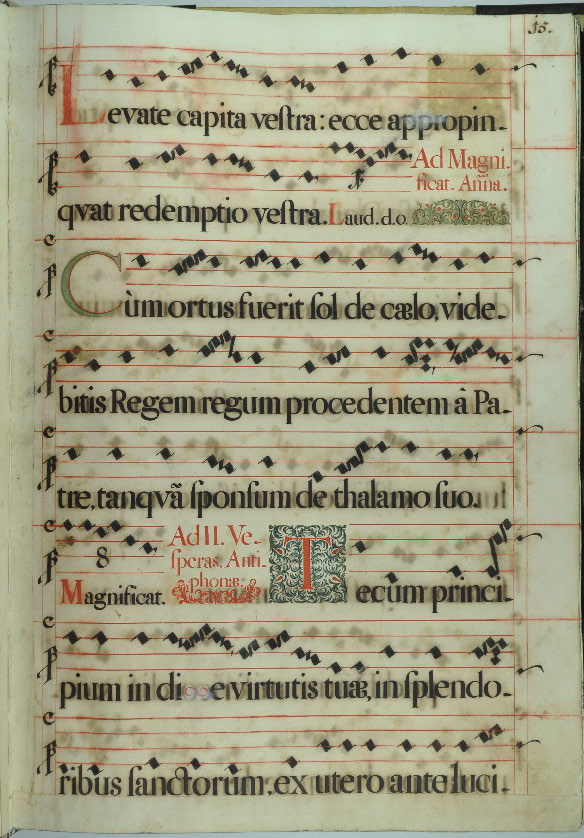 15.
Levate capita vestra: ecce appropin-
qvat redemptio vestra. Laud. d. o. Ad Magni-
ficat. Anna.
Cùm ortus fuerit sol de cælo, vide-
bitis Regem regum procedentem â Pa-
tre, tanqvã sponsum de thalamo suo.
8
Magnificat. Ad II. Ve-
speras. Anti-
phonæ.
Tecùm princi-
pium in die virtutis tuæ, in splendo-
ribus sanctorum. ex utero ante luci-